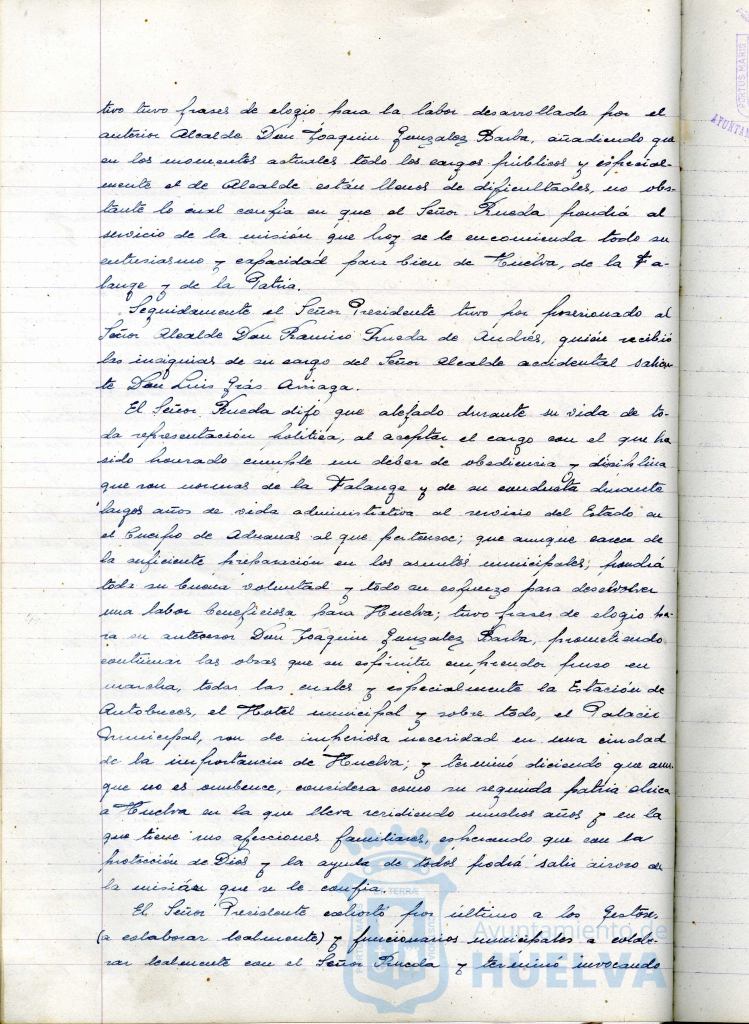 tivo tuvo frases de elogio para la labor desarrollada por el
anterior Alcalde Don Joaquin Gonzalez Barba, añadiendo que
en los momentos actuales todo los cargos públicos y especial-
mente el de Alcalde están llenos de dificultades, no obs-
tante lo cual confia en que el Señor Rueda pondrá al
servicio de la misión que hoy se le encomienda todo su
entusiasmo y capacidad para bien de Huelva, de la Fa-
lange y de la Patria.
Seguidamente el Señor Presidente tuvo por posesionado al
Señor Alcalde Don Ramiro Rueda de Andrés, quien recibió
las insignias de su cargo del Señor Alcalde accidental salien-
te Don Luis Grás Arriaga.
El Señor Rueda dijo que alejado durante su vida de to-
da representación política, al aceptar el cargo con el que ha
sido honrado cumple un deber de obediencia y disciplina
que son normas de la Falange y de su conducta durante
largos años de vida administrativa al servicio del Estado en
el Cuerpo de Aduanas al que pertenece; que aunque carece de
la suficiente preparación en los asuntos municipales; pondrá
toda su buena voluntad y todo su esfuerzo para desolvolver
una labor beneficiosa para Huelva; tuvo frases de elogio pa-
ra su antecesor Don Joaquin Gonzalez Barba, prometiendo
continuar las obras que su espíritu emprendor puso en
marcha, todas las cuales y especialmente la Estación de
Autobuces, el Hotel municipal y sobre todo, el Palacio
municipal, son de imperiosa necesidad en una ciudad
de la importancia de Huelva; y terminó diciendo que aun-
que no es onubence, considera como su segunda patria chica
a Huelva en la que lleva residiendo muchos años y en la
que tiene sus afecciones familiares, esperando que con la
protección de Dios y la ayuda de todos podrá salir airoso de
la misión que se le confia.
El Señor Presidente exhortó por último a los Gestores
(a colaborar lealmente) y funcionarios municipales a colabo-
rar lealmente con el Señor Rueda y terminó invocando
Ayuntamiento de
HUELVA
PORTUS MARIS
AYUNTAM